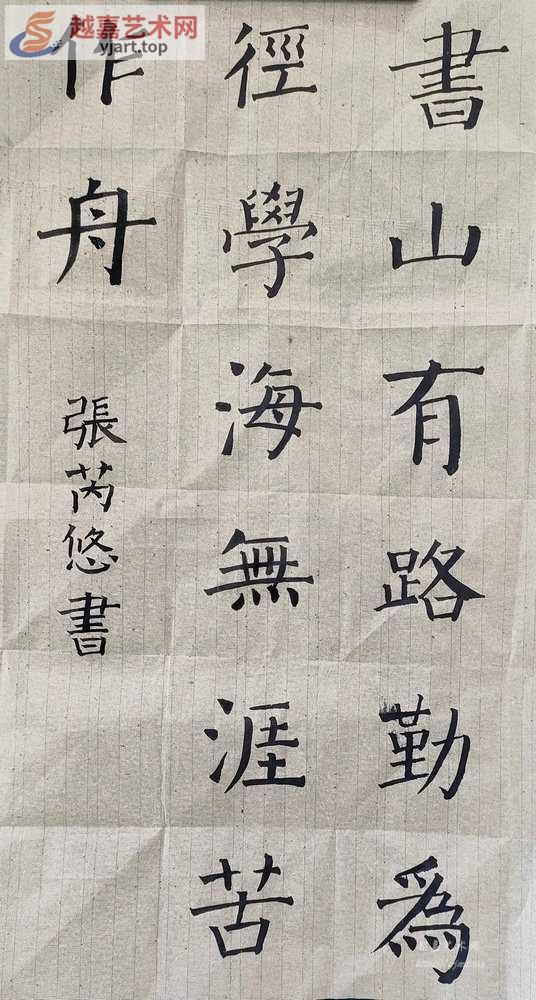 書山有路勤為
徑學海無涯苦
作舟
張芮悠書
越嘉艺术网
yjart.top